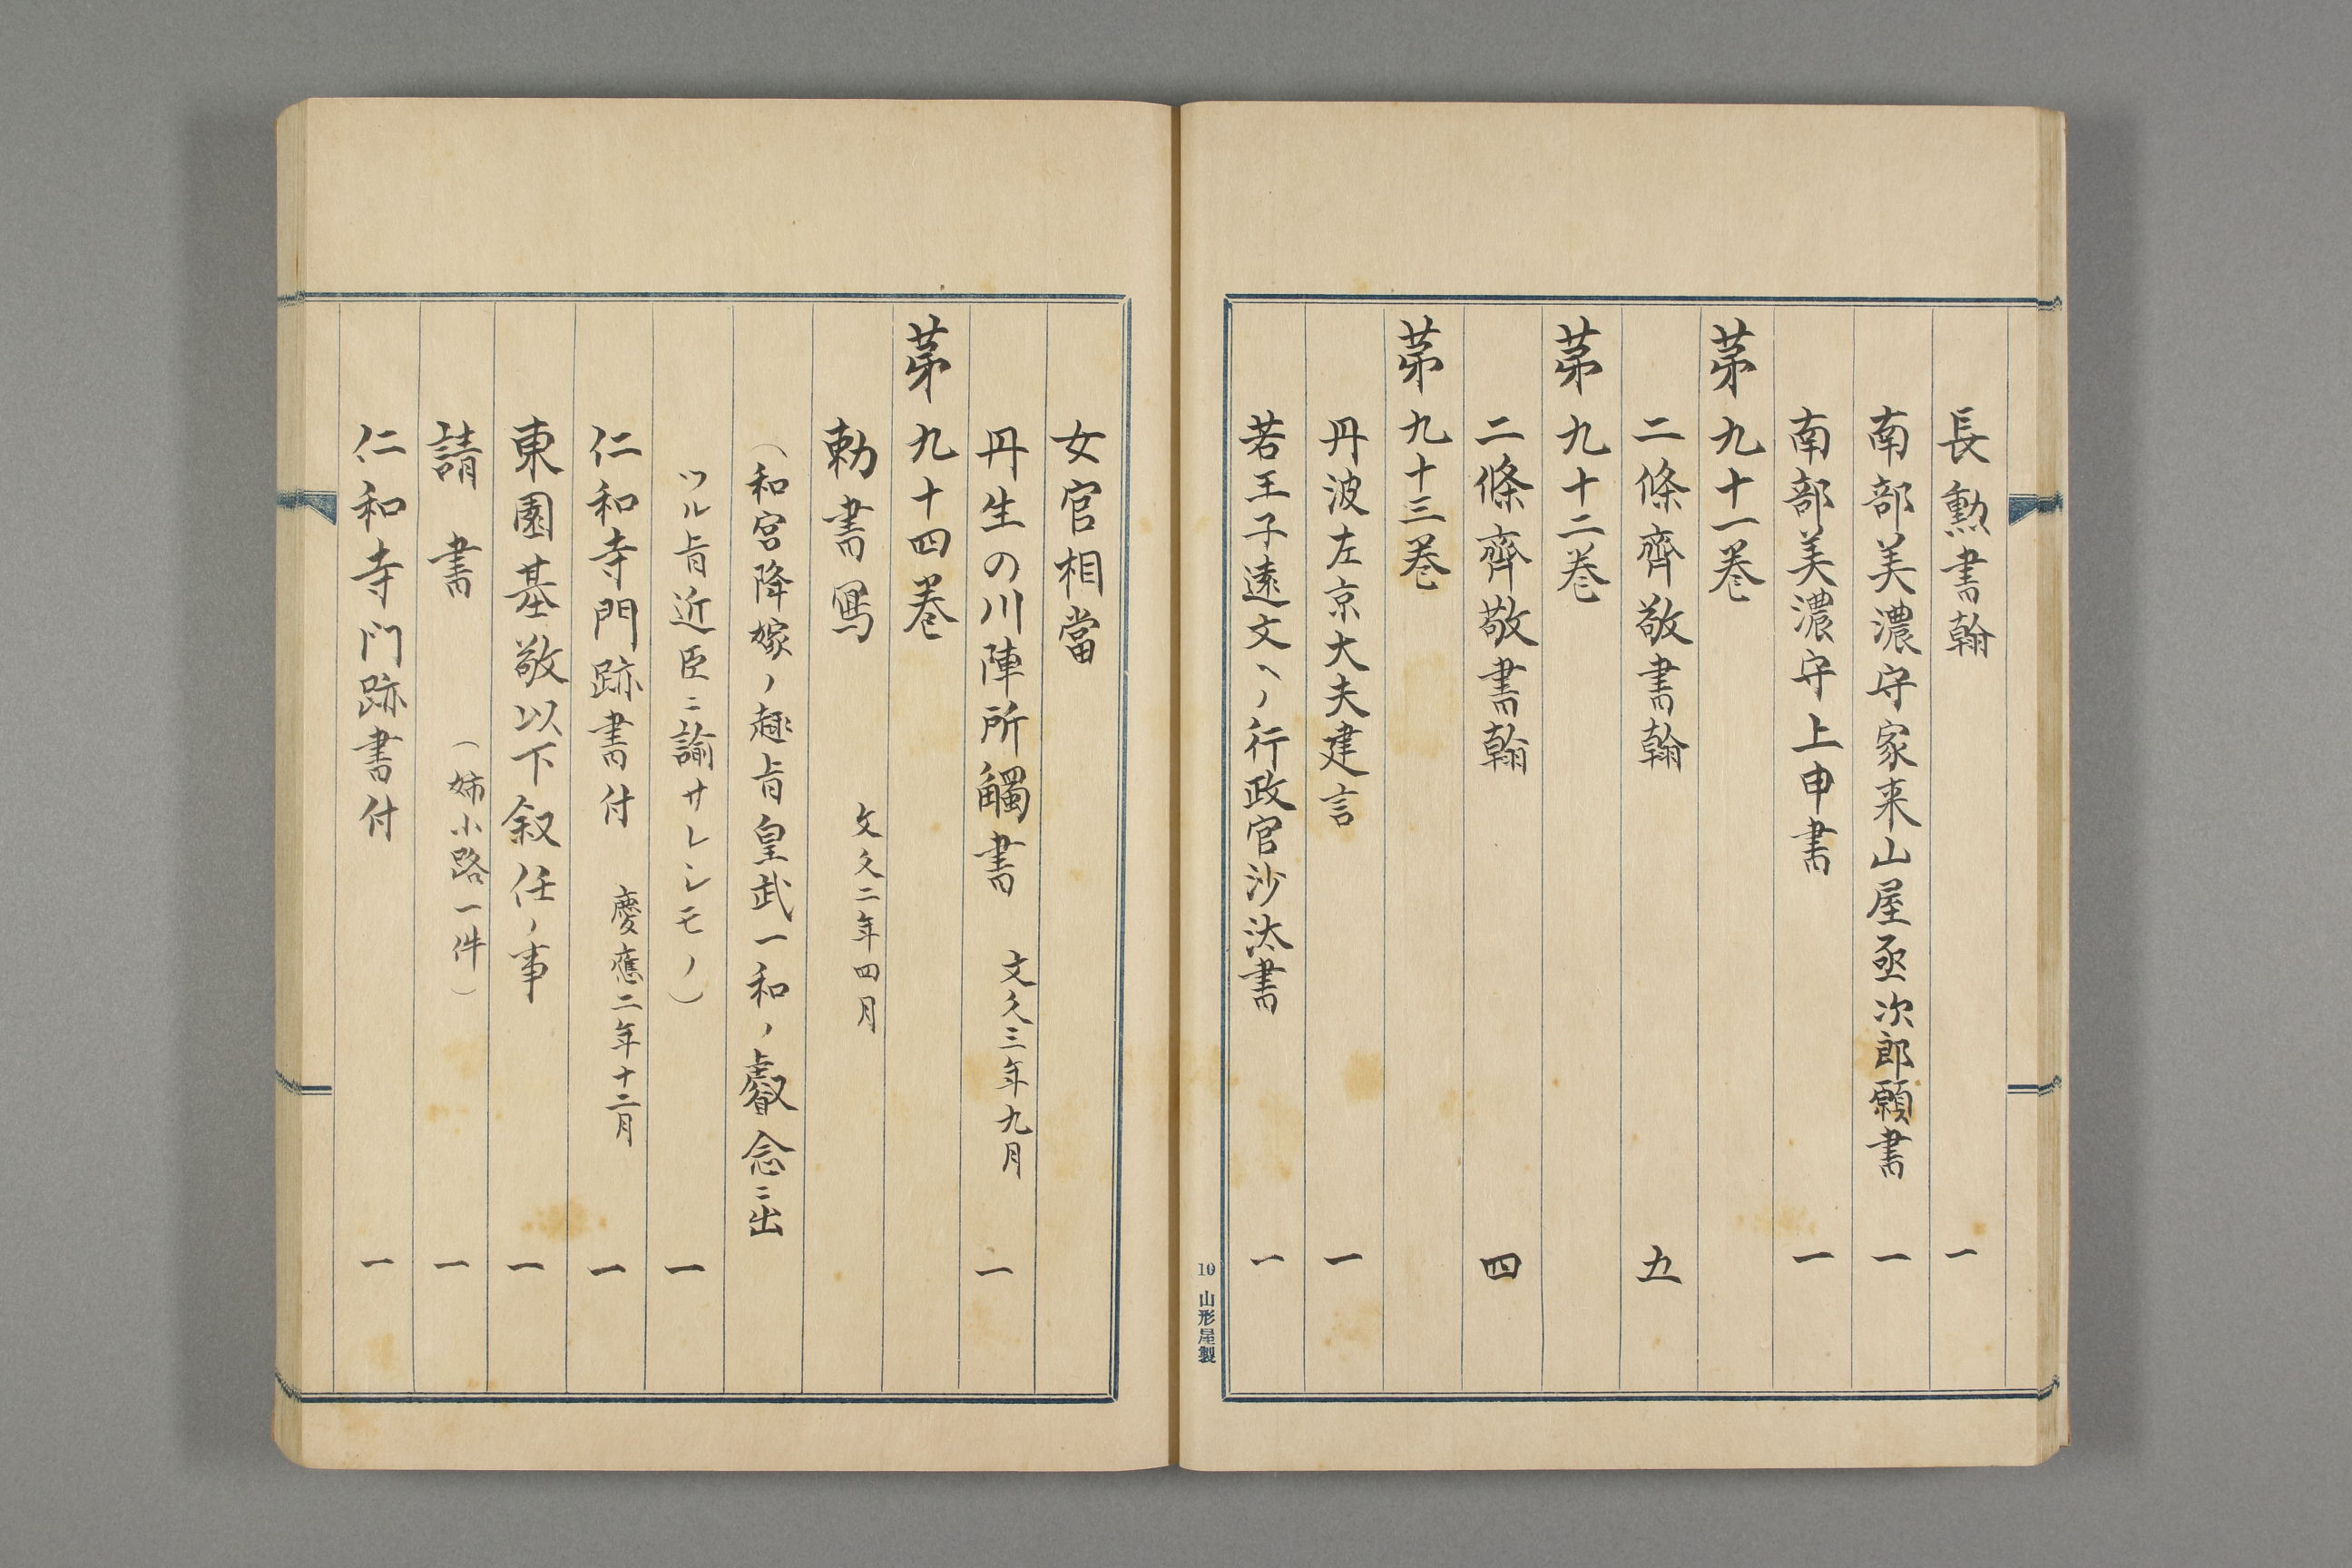 長勲書翰 一
南部美濃守家来山屋丞次郎願書 一
南部美濃守上申書 一
苐九十一巻
二條齊敬書翰 五
苐九十二巻
二條齊敬書翰 四
苐九十三巻
丹波左京大夫建言 一
若王子遠文ヘノ行政官沙汰書 一
10 山形屋製
女官相當
丹生の川陣所觸書 文久三年九月 一
苐九十四巻
勅書寫 文久二年四月
(和宮降嫁ノ趣旨皇武一和ノ叡念ニ出
ツル旨近臣ニ諭サレシモノ) 一
仁和寺門跡書付 慶應二年十二月 一
東園基敬以下叙任ノ事 一
請書 (姉小路一件) 一
仁和寺门跡書付 一